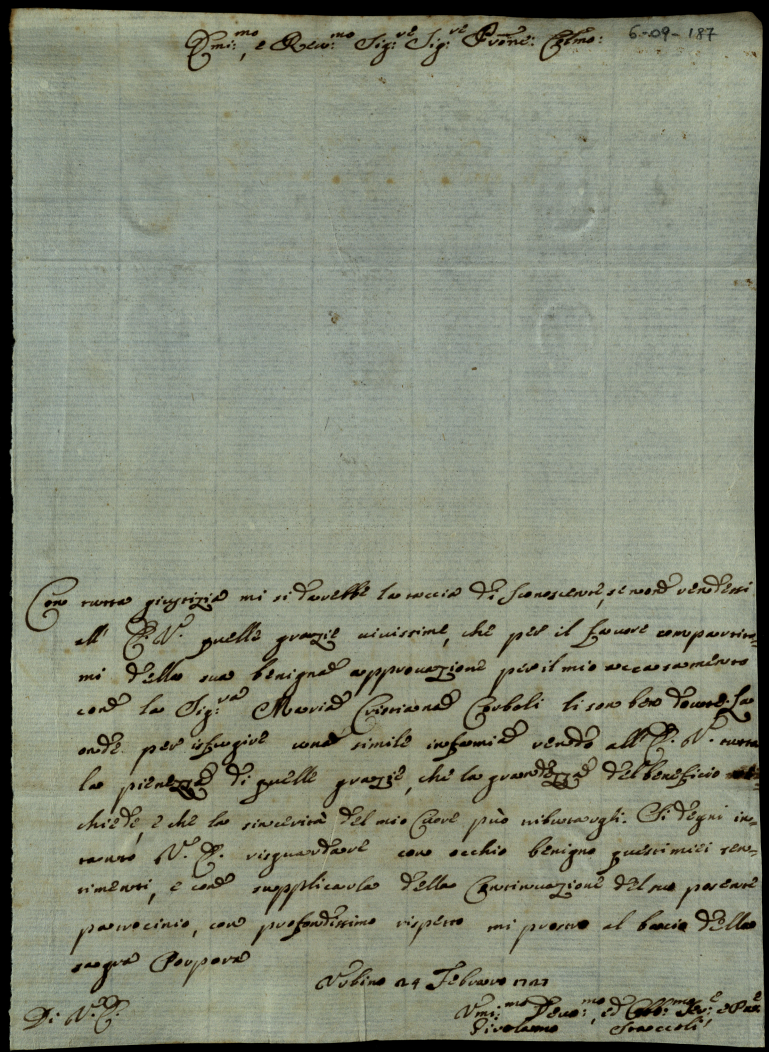 Emi:mo, e Reu:mo Sig:re Sig:re Prone: Colmo: 6-09-187
Con tutta giustizia mi si darebbe la taccia di sconoscente, se non rendessi
all' E. V. quelle grazie uiuissime, che per il fauore compartito=
mi della sua benigna approuazione per il mio accasamento
con la Sig:ra Maria Corboli li son ben douute. La
onde per isfugire una simile infamia rendo all' E. V. tutta
la pienezza di quelle grazie, che la grandezza del beneficio
chiede, e che la sincerità del mio Cuore può tributargli. Si degni in=
tanto V. E. risguardare con occhio benigno questi miei sen=
timenti, e con supplicarla della Continuazione del suo potente
patrocinio, con profondissimo rispetto mi prostro al bacio della
sagra Porpora
Vrbino 24 Febraro 1721
Di V. E.
Vmi:mo Deuo:mo, ed Obb:mo Ser:e
Girolamo Staccoli